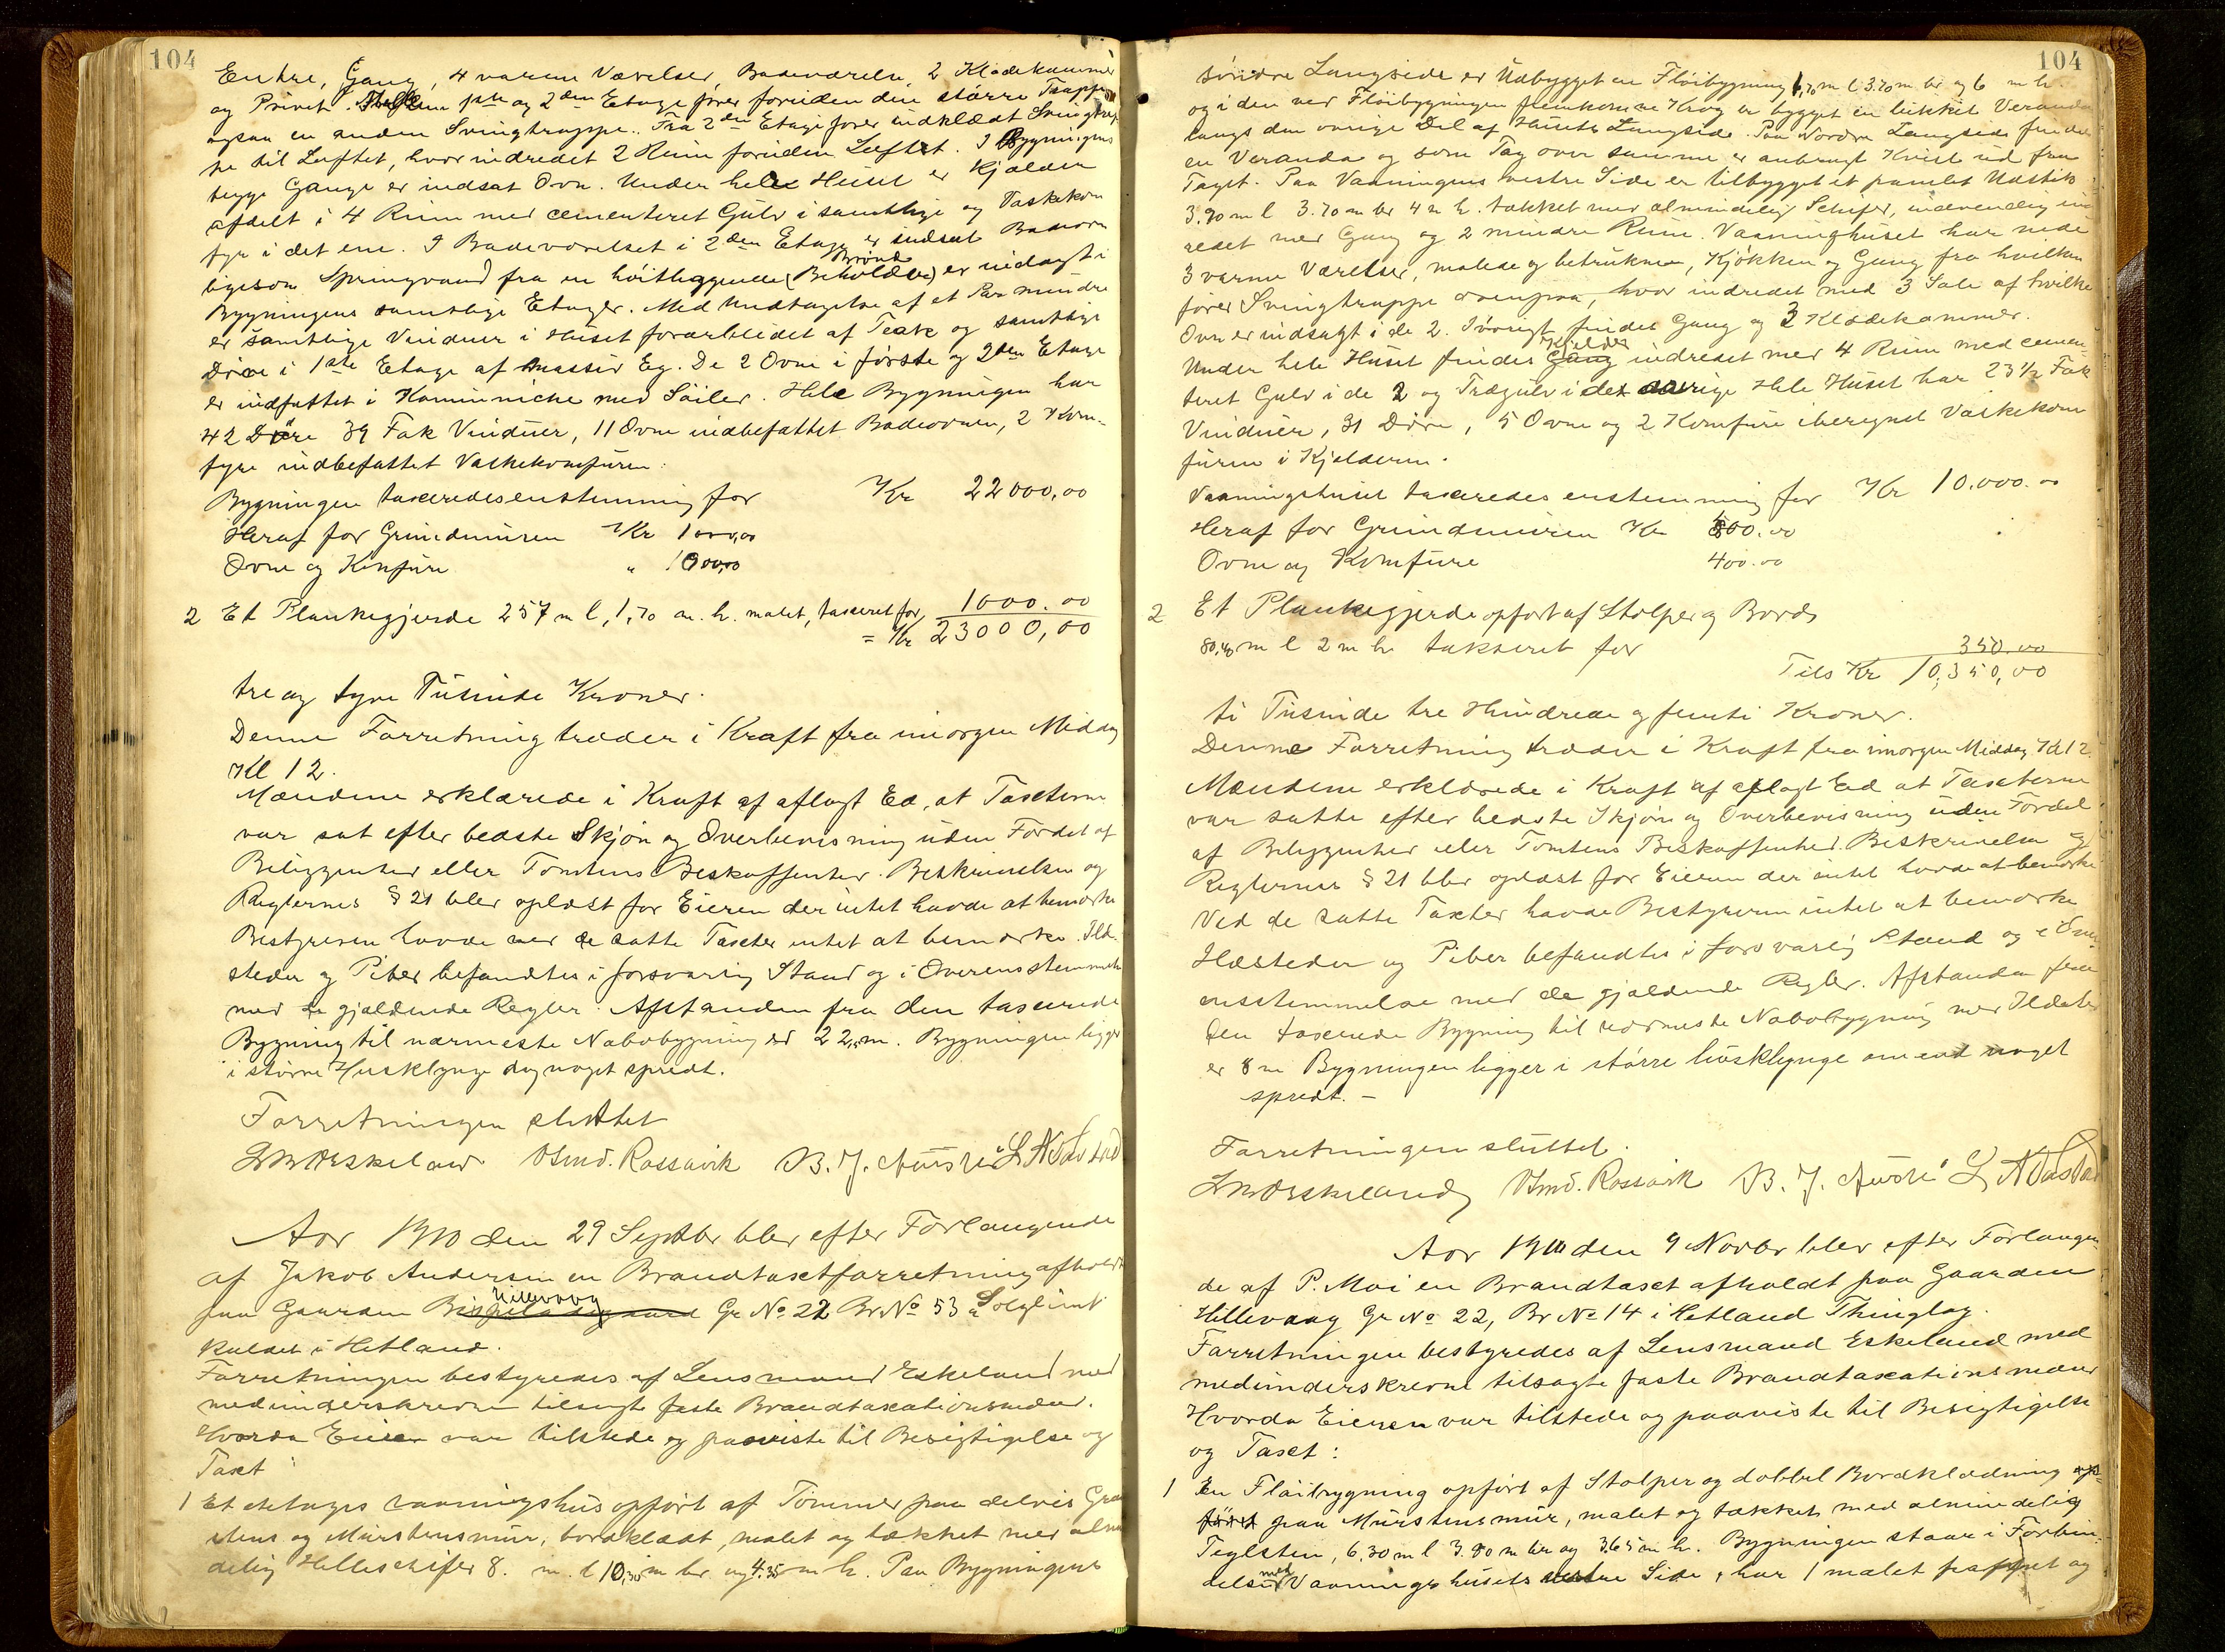 104
Entre, Gang, 4 varme Værelser, Badeværelse, 2 Klædekammer
og Privet. Mellem 1ste og 2den Etage fører foruden den større Trappe
ogsaa en anden Svingtrappe. Fra 2den Etage fører indklædt Svingtrap
pe til Luftet, hvor indredet 2 Rum foruden Luftet. I Bygningens
begge Gange er indsat Ovn. Under hele Huset er Kjælder
afdelt i 4 Rum med cementeret Gulv i samtlige og Vaskekom
fyr i det ene. I Badeværelset i 2den Etage er indsat Badeovn
ligesom Springvand fra en høitliggende (Beholder) Brønd er indlagt i
Bygningens samtlige Etager. Med Undtagelse af et Par mindre
er samtlige Vinduer i Huset forarbeidet af Teak og samtlige
Døre i 1ste Etage af massiv Eg. De 2 Ovne i første og 2den Etage
er indfattet i Kaminniche med Søiler. Hele Bygningen har
42 Døre 39 Fak Vinduer, 11 Ovne indbefattet Badeovnen, 2 Kom-
fyre indbefattet Vaskekomfuren.
Bygningen taxeredes enstemmig for Kr 22000,00
Heraf for Grundmuren Kr 1000,00
Ovne og Komfure " 1000,00
2 Et Plankegjerde 257 m l, 1,70 m. h. malet, taxeret for 1000.00
= Kr 23000,00
tre og tyve Tusinde Kroner.
Denne Forretning træder i Kraft fra imorgen Middag
Kl 12.
Mændene erklærede i Kraft af aflagt Ed, at Taxterne
var sat efter bedste Skjøn og Overbevisning uden Fordel af
Beliggenhed eller Tomtens Beskaffenhed. Beskrivelsen og
Reglernes § 21 blev oplæst for Eieren der intet havde at bemærke
Bestyreren havde ved de satte Taxter intet at bemærke. Ild-
steder og Piber befandtes i forsvarlig Stand og i Overensstemmelse
med de gjældende Regler. Afstanden fra den taxerede
Bygning til nærmeste Nabobygning er 22,5 m. Bygningen ligger
i større Husklynge dog noget spredt.
Forretningen sluttet
Osmd. Rossavik B. J. Austrå L A Tastad
Aar 1910 den 29 Septbr blev efter Forlangende
af Jakob Andersen en Brandtaxtforretning afholdt
paa Gaarden Hillevaag Gr No 22 Br No 53 Solglimt
kaldet i Hetland.
Forretningen bestyredes af Lensmand Eskeland med
medunderskrevne tilsagte faste Brandtaxationsmænd.
Hvorda Eieren var tilstede og paaviste til Besigtigelse og
Taxt
1 Et etages vaaningshus opført af Tømmer paa delvis Graa
stens og Murstensmur, bordklædt, malet og tækket med almin
delig Helleschifer 8. m. l 10,30 m br. og 4.35 m h. Paa Bygningens
104
søndre Langside er Udbygget en Fløibygning 1,70 m l 3.70 m br og 6 m h.
og i den ved Fløibygningen fremkomne Krog er bygget en lukket Veranda
langs den øvrige Del af Husets Langside. Paa Nordre Langside findes
en Veranda og som Tag over samme er anbragt Kvist ud fra
Taget. Paa Vaaningens vestre Side er tilbygget et panelet Udstik
3.90 m l 3.70 m br 4 m h. tækket med almindelig Schifer, indvendig ind
redet med Gang og 2 mindre Rum. Vaaninghuset har nede
3 varme Værelser, malede og betrukne, Kjøkken og Gang fra hvilken
fører Svingtrappe ovenpaa, hvor indredet med 3 Sale af hvilke
Ovn er indsagt i de 2. Iøvrigt findes Gang og 3 Klædekammer.
Under hele Huset findes Kjelder indredet med 4 Rum med cemen
teret Gulv i de 2 og Trægulv i det øvrige Hele Huset har 23 1/2 Fak
Vinduer, 31 Døre, 5 Ovne og 2 Komfure iberegnet Vaskekom
furen i Kjælderen.
Vaaningshuset taxeredes enstemmig for Kr 10.000.00
Heraf for Grundmuren Kr 500.00
Ovne og Komfure 400.00
2 Et Plankegjerde opført af Stolper og Bords
80,40 m l 2 m h takseret for 350.00
Tils Kr 10,350,00
ti Tusinde tre Hundrede og femti Kroner.
Denne Forretning træder i Kraft fra imorgen Middag Kl 12.
Mændene erklærede i Kraft af aflagt Ed at Taxterne
var satte efter bedste Skjøn og Overbevisning uden Fordel
af Beliggenhed eller Tomtens Beskaffenhed. Beskrivelse og
Reglernes § 21 blev oplæst for Eieren der intet havde at bemærke
Ved de satte Taxter havde Bestyreren intet at bemærke
Ildsteder og Piber befandtes i forsvarlig Stand og i Over
ensstemmelse med de gjældende Regler. Afstanden fra
den taxerede Bygning til nærmeste Nabobygning med Ildsted
er 8 m Bygningen ligger i større husklynge om end noget
spredt. –
Forretningen sluttet.
Osmd. Rossavik B. J. Austrå L A Tastad
Aar 1910 den 9 Novbr blev efter Forlangen-
de af P. Moi en Brandtaxt afholdt paa Gaarden
Hillevaag Gr No 22, Br No 14 i Hetland Thinglag.
Forretningen bestyredes af Lensmand Eskeland med
medunderskrevne tilsagte faste Brandtaxationsmænd
Hvorda Eieren var tilstede og paaviste til Besigtigelse
og Taxt:
1 En Fløibygning opført af Stolper og dobbel Bordklædning op-
ført paa Murstensmur, malet og tækket med almindelig
Teglsten, 6,30 m l 3.90 m br og 3.65 m h. Bygningen staar i Forbin-
delse med Vaaningshusets vestre Side, har 1 malet pappet og